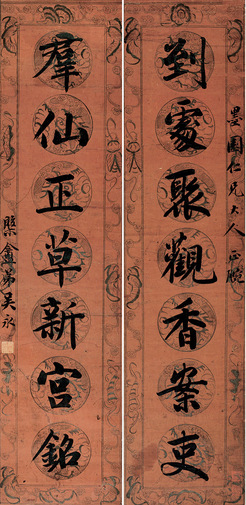 墨園仁兄大人正腕
到處聚觀香案吏
羣仙正草新宮銘
槼盦弟吳永